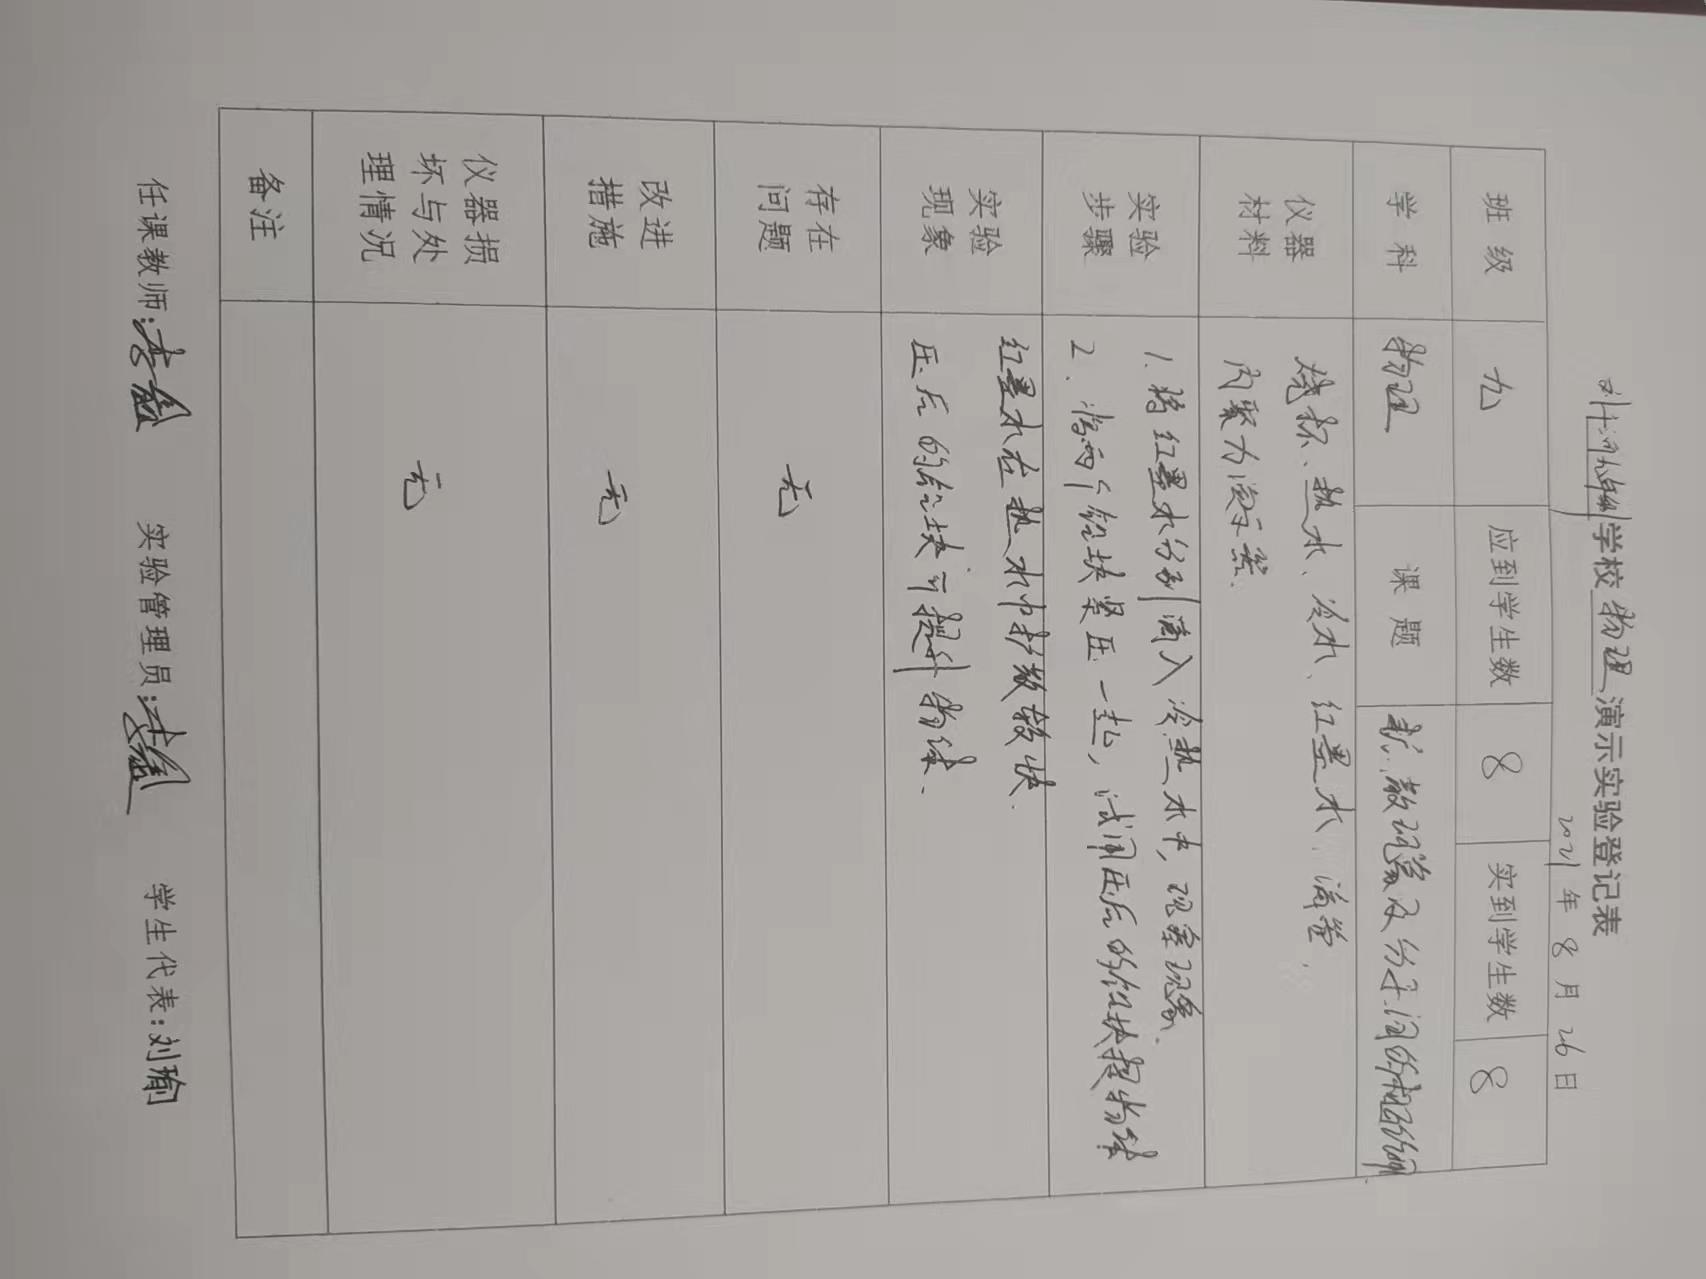 学校 物理 演示实验登记表
2021年 8 月 26 日
班级 九 应到学生数 8 实到学生数 8
学科 物理 课题 扩散现象及分子间的作用
仪器材料
烧杯、热水、冷水、红墨水、滴管、
内聚力演示器.
实验步骤
1. 将红墨水分别滴入冷热水中，观察现象.
2. 将两个铅块紧压一起，试用压后的铅块提物体
实验现象
红墨水在热水中扩散较快.
压后的铅块可提升物体.
存在问题 无
改进措施 无
仪器损坏与处理情况 无
备注
任课教师: 实验管理员: 学生代表: 刘瑜